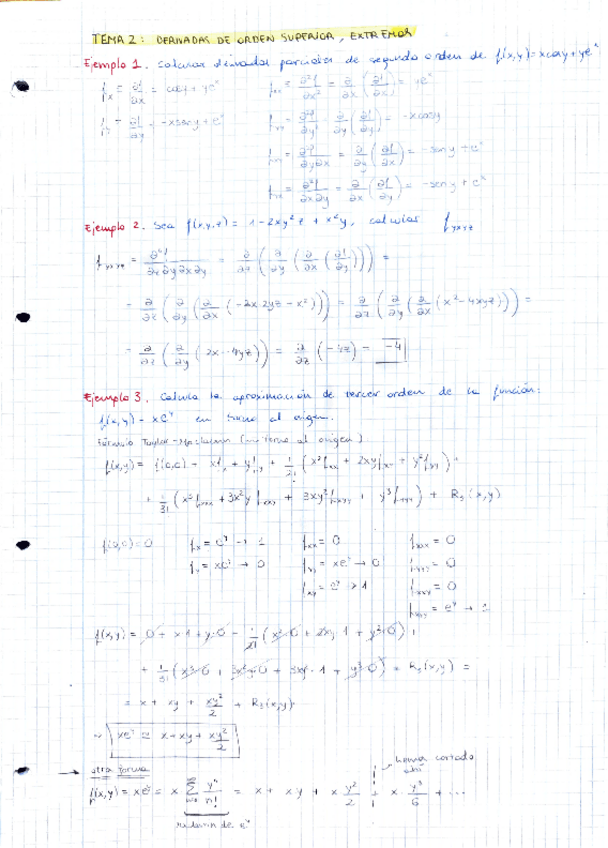 TEMA 2: DERIVADAS DE ORDEN SUPERIOR, EXTREMOS
Ejemplo 1. Calcular derivadas parciales de segundo orden de f(x,y) = xcosy + ye^x
f_x = ∂f/∂x = cosy + ye^x    f_xx = ∂²f/∂x² = ∂/∂x (∂f/∂x) = ye^x
f_y = ∂f/∂y = -xseny + e^x    f_yy = ∂²f/∂y² = ∂/∂y (∂f/∂y) = -xcosy
∂²f/∂y∂x = ∂/∂y (∂f/∂x) = -seny + e^x
∂²f/∂x∂y = ∂/∂x (∂f/∂y) = -seny + e^x
Ejemplo 2. Sea f(x,y,z) = 1 - 2xy²z + x²y, calcular f_yxyz
f_yxyz = ∂⁴f/∂z∂y∂x∂y = ∂/∂z (∂/∂y (∂/∂x (∂f/∂y))) =
∂/∂z (∂/∂y (∂/∂x (x² - 4xyz))) =
= ∂/∂z (∂/∂y (2x - 4yz)) = ∂/∂z (-4z) = -4
Ejemplo 3. Calcula la aproximación de tercer orden de la función:
f(x,y) = xe^y en torno al origen.
Fórmula Taylor - (en torno al origen)
f(x,y) = f(0,0) + xf_x + yf_y + 1/2! (x²f_xx + 2xyf_xy + y²f_yy) +
+ 1/3! (x³f_xxx + 3x²yf_xxy + 3xy²f_xyy + y³f_yyy) + R₃(x,y)
f(0,0) = 0    f_x = e^y → 1    f_xx = 0    f_xxx = 0
f_y = xe^y → 0    f_yy = xe^y → 0    = 0
f_xy = e^y → 1    = 0
f_xyy = e^y → 1
f(x,y) = 0 + x·1 + y·0 + 1/2! (x²·0 + 2xy·1 + y²·0) +
+ 1/3! (x³·0 + 3x²y·0 + 3xy²·1 + y³·0) + R₃(x,y) =
= x + xy + xy²/2 + R₃(x,y)
→ xe^y ≃ x + xy + xy²/2
→ otra forma    hemos cortado ahí
f(x,y) = xe^y = x Σ y^n/n! = x + xy + x y²/2 + x · y³/6 + ...
de e^y